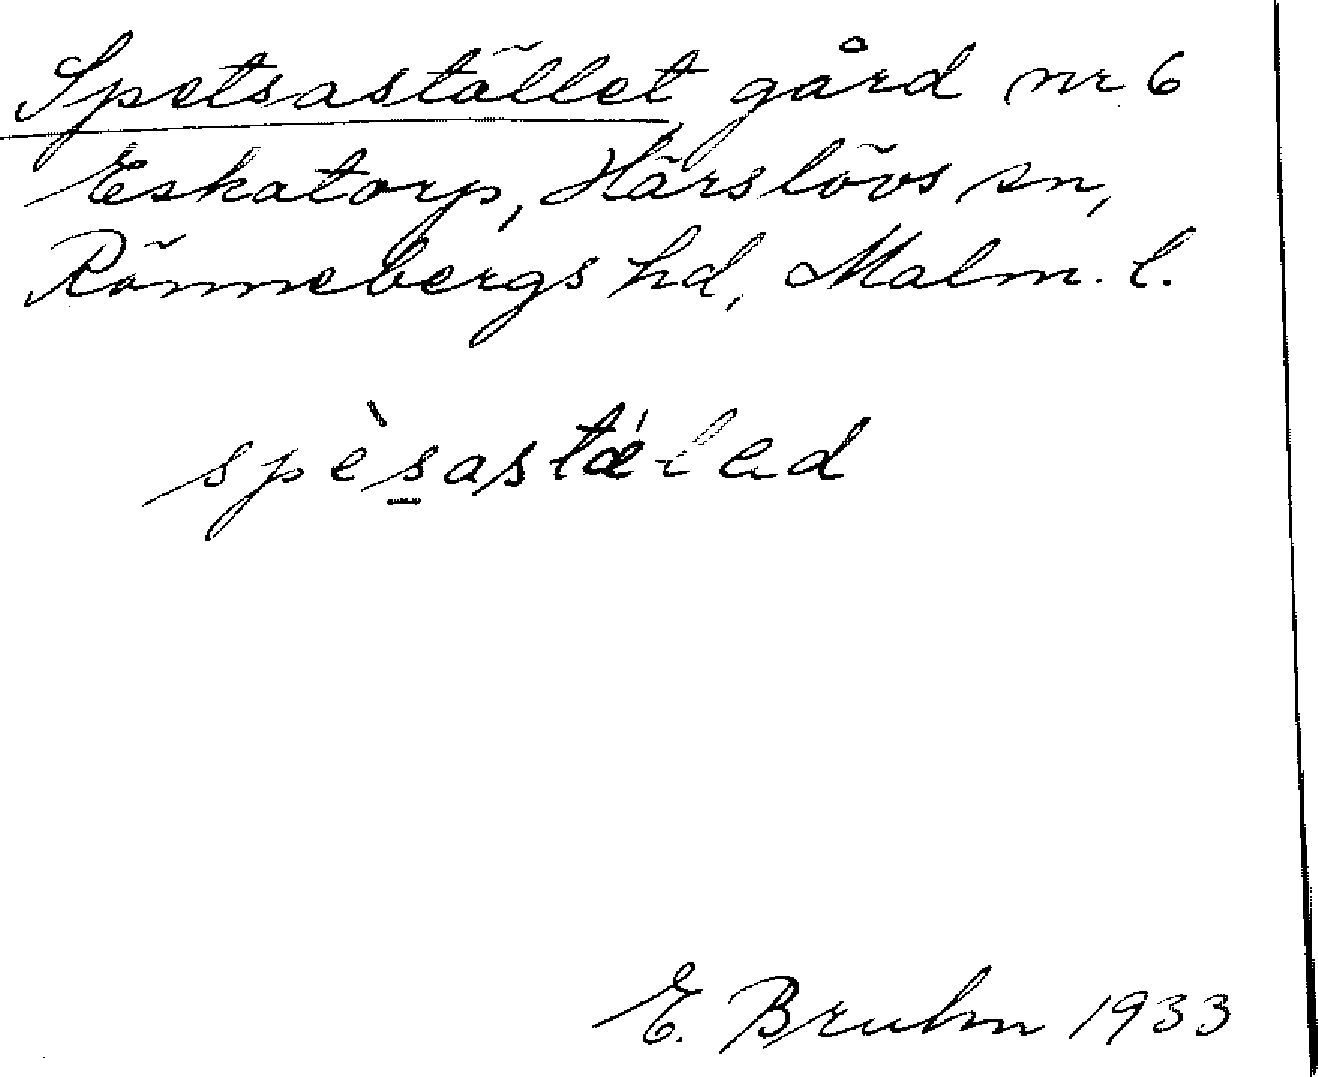 Spetsastället gård nr 6
Eskatorp, Härslövs sn,
Rönnebergs hd, Malm. l.
spèsastǽlad
E. Bruhn 1933